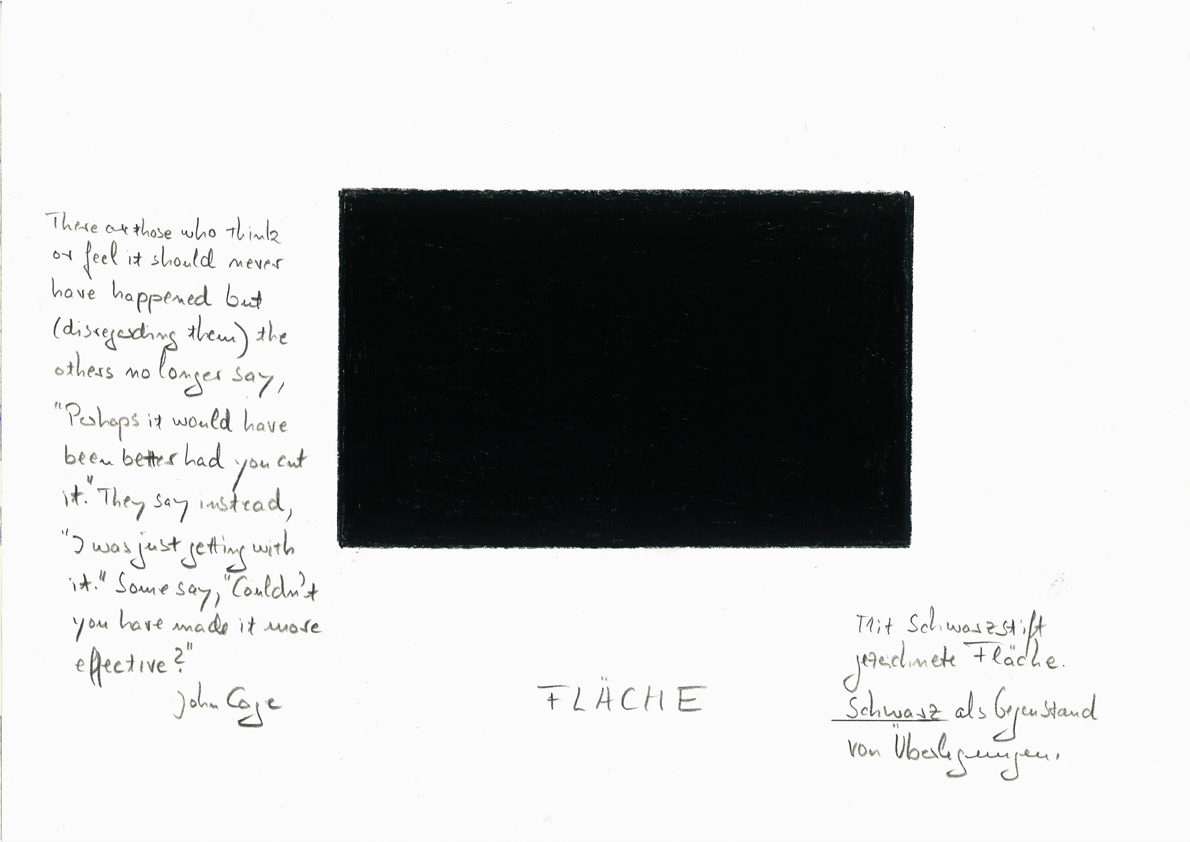 There are those who think
or feel it should never
have happened but
(disregarding them) the
others no longer say,
"Perhaps it would have
been better had you cut
it." They say instead,
"I was just getting with
it." Some say, "Couldn't
you have made it more
effective?"
John Cage
FLÄCHE
Mit Schwarzstift
gezeichnete Fläche.
Schwarz als Gegenstand
von Überlegungen.